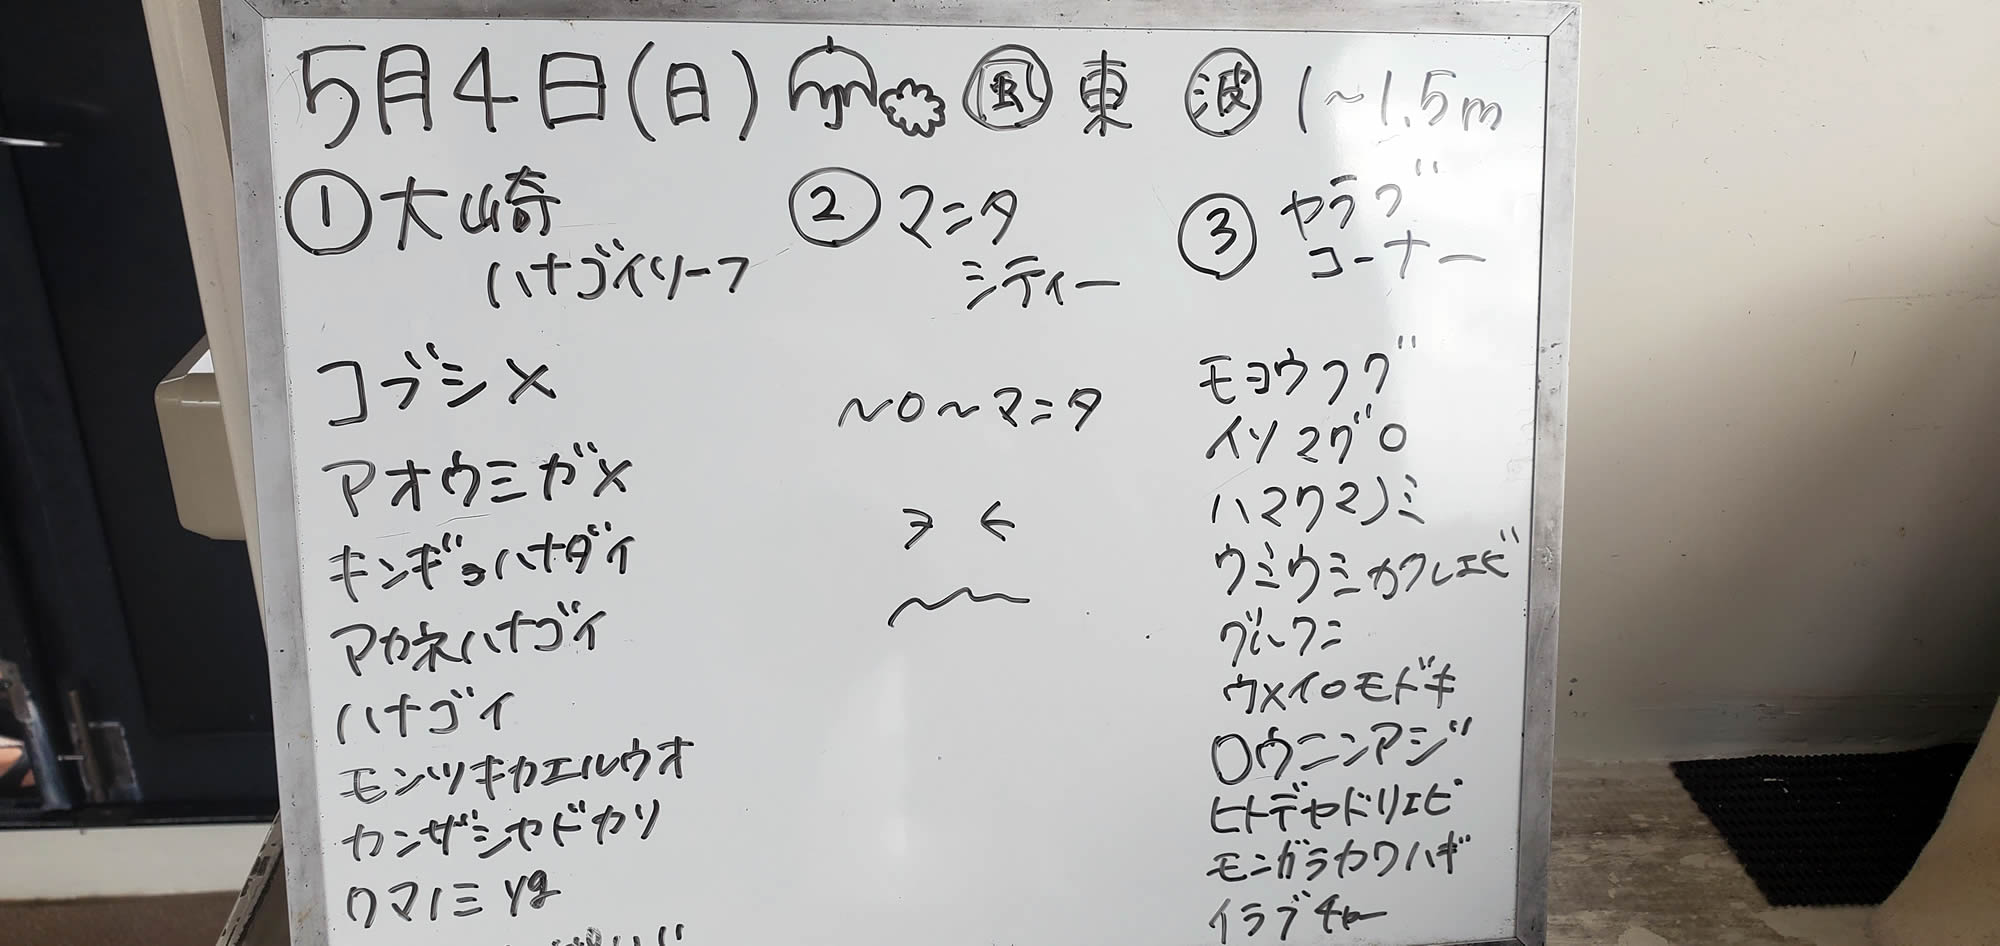 5月4日(日) 風 東 波 1~1.5m
① 大崎
ハナゴイリーフ
コブシメ
アオウミガメ
キンギョハナダイ
アカネハナゴイ
ハナゴイ
モンツキカエルウオ
カンザシヤドカリ
クマノミ yg
② マンタ
シティー
~0~マンタ
③ ヤラブ
コーナー
モヨウフグ
イソマグロ
ハマクマノミ
ウミウミカクレエビ
グルクン
ウメイロモドキ
ロウニンアジ
ヒトデヤドリエビ
モンガラカワハギ
イラブチャー